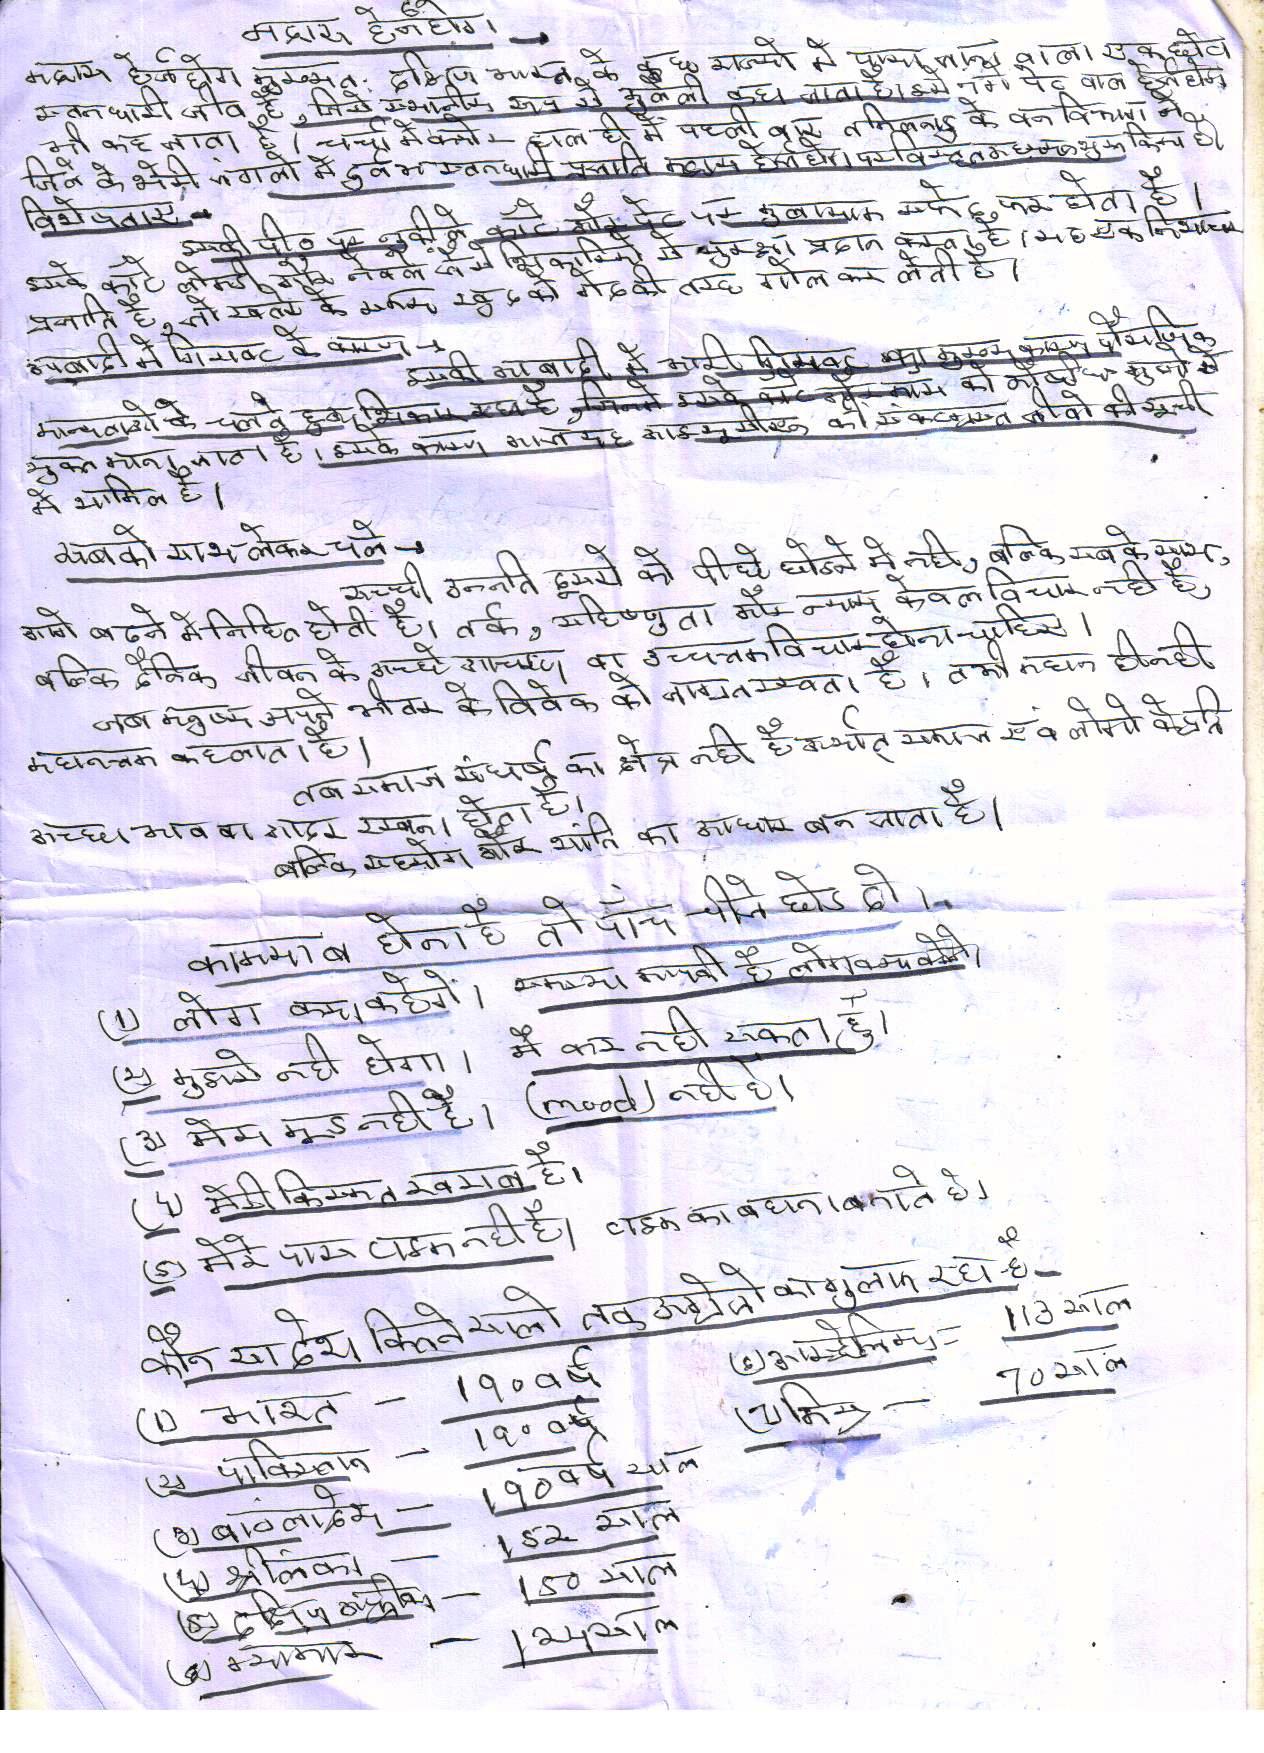 मद्रास हेजहोग। →
मद्रास हेजहोग मुख्यतः दक्षिण भारत के कुछ राज्यो में पाया जाने वाला एक छोटा
स्तनधारी जीव है, जिसे स्थानीय रूप से मुल्ली कहा जाता है। इसे नंगे पेट वाल हेजहोग
भी कहा जाता है। चर्चा में क्यो- हाल ही में पहली बार तमिलनाडु के वन विभाग ने
जिले के थेरी जंगलो में दुर्लभ स्तनधारी प्रजाति मद्रास हेजहोग पर विस्तृत अध्ययन शुरू किया है।
विशेषताएं →
इसकी पीठ पर नुकीले कांटे और पेट पर मुलायम सफेद फर होता है।
इसके कांटे लोमडी और नेवले जैसे शिकारियो से सुरक्षा प्रदान करता है। यह एक निशाचर
प्रजाति है, जो खतरे के समय खुद को गेंद की तरह गोल कर लेती है।
आबादी में गिरावट के कारण →
इसकी आबादी में भारी गिरावट का मुख्य कारण पौराणिक
मान्यताओ के चलते हुए शिकार रहा है, जिनमे इसके कांटे और मांस को औषधीय गुणो से
युक्त माना जाता है। इसके कारण आज यह आइयूसीएन की संकटग्रस्त जीवो की सूची
में शामिल है।
सबको साथ लेकर चले →
सच्ची उन्नति दूसरो को पीछे छोडने में नही, बल्कि सब के साथ,
आगे बढने में निहित होती है। तर्क, सहिष्णुता और न्याय केवल विचार नही है,
बल्कि दैनिक जीवन के अच्छे आचरण वा उच्चत्तम विचार होना चाहिए।
जब मनुष्य अपने भीतर के विवेक को जाग्रत रखता है। तभी महान ही नही
महानत्तम कहलाता है।
तब समाज संघर्ष का क्षेत्र नही है अर्थात् समाज एंव लोगो के प्रति
अच्छा भाव वा आदर रखना होता है।
बल्कि सहयोग और शांति का आधार बन जाता है।
कामयाब होना है तो पांच चीजे छोड दो।
(1) लोग क्या कहेगें। समस्या आपकी है लोग क्या करेगे।
(2) मुझसे नही होगा। मैं कर नही सकता हुं।
(3) मेरा मूड नही है। (mood) नही है।
(4) मेरी किस्मत खराब है।
(5) मेरे पास टाइम नही है। टाइम का बहाना बनाते है।
कौन सा देश कितने सालो तक अंग्रेजो का गुलाम रहा है-
(1) भारत - 190 वर्ष
(2) पाकिस्तान - 190 वर्ष
(3) बांग्लादेश - 190 वर्ष साल
(4) श्रीलंका - 152 साल
(5) दक्षिण अफ्रीका - 150 साल
(6) म्यांमार - 125 साल
(6) आस्ट्रेलिया = 113 साल
(7) मिस्र - 70 साल